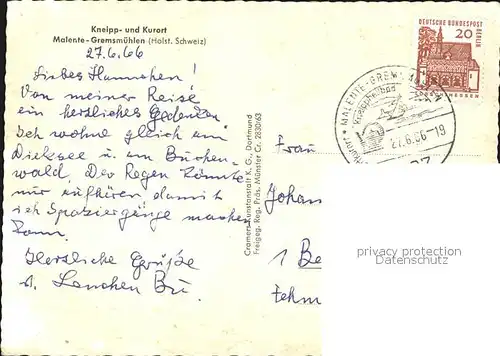 Kneipp- und Kurort
Malente-Gremsmühlen (Holst. Schweiz)
27.6.66
Liebes Hannchen!
Von meiner Reise
ein herzliches Gedenken
Ich wohne gleich am
Dieksee u. am Buchen-
wald. Der Regen könnte
nur aufhören damit
ich Spaziergänge machen
kann.
Herzliche Grüße
Lenchen Bu.
Cramers Kunstanstalt K. G., Dortmund
Freigeg. Reg. Präs. Münster Cr. 2830/63
DEUTSCHE BUNDESPOST
BERLIN
20
LORSCH HESSEN
MALENTE-GREMSMÜHLEN
Kneippheilbad
27.6.66-19
Frau
Johan
1 Be
Zehm
privacy protection
Datenschutz